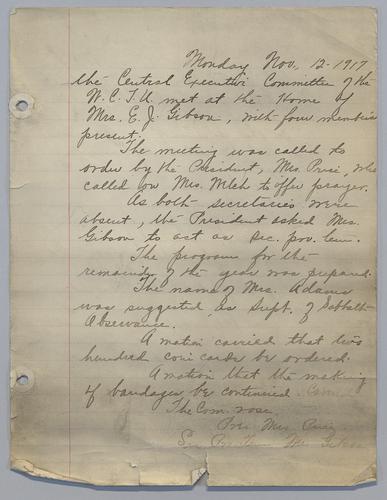 Monday Nov, 12-1917
the Central Executive Committee of the
W.C.T.U. met at the Home of
Mrs. E. J. Gibson, with four members
present,
The meeting was called to
order by the President, Mrs. who
called on Mrs. to offer prayer.
As both secretaries were
absent, the President asked Mrs.
Gibson to act as Sec. pro. tem.
The program for the
of the year was prepared.
The name of Mrs. Adams
was suggested as Supt. of Sabbath
Observance.
A motion carried that two
hundred coin cards be ordered.
A motion that the making
of bandages be continued
The Com. rose,
Pres. Mrs